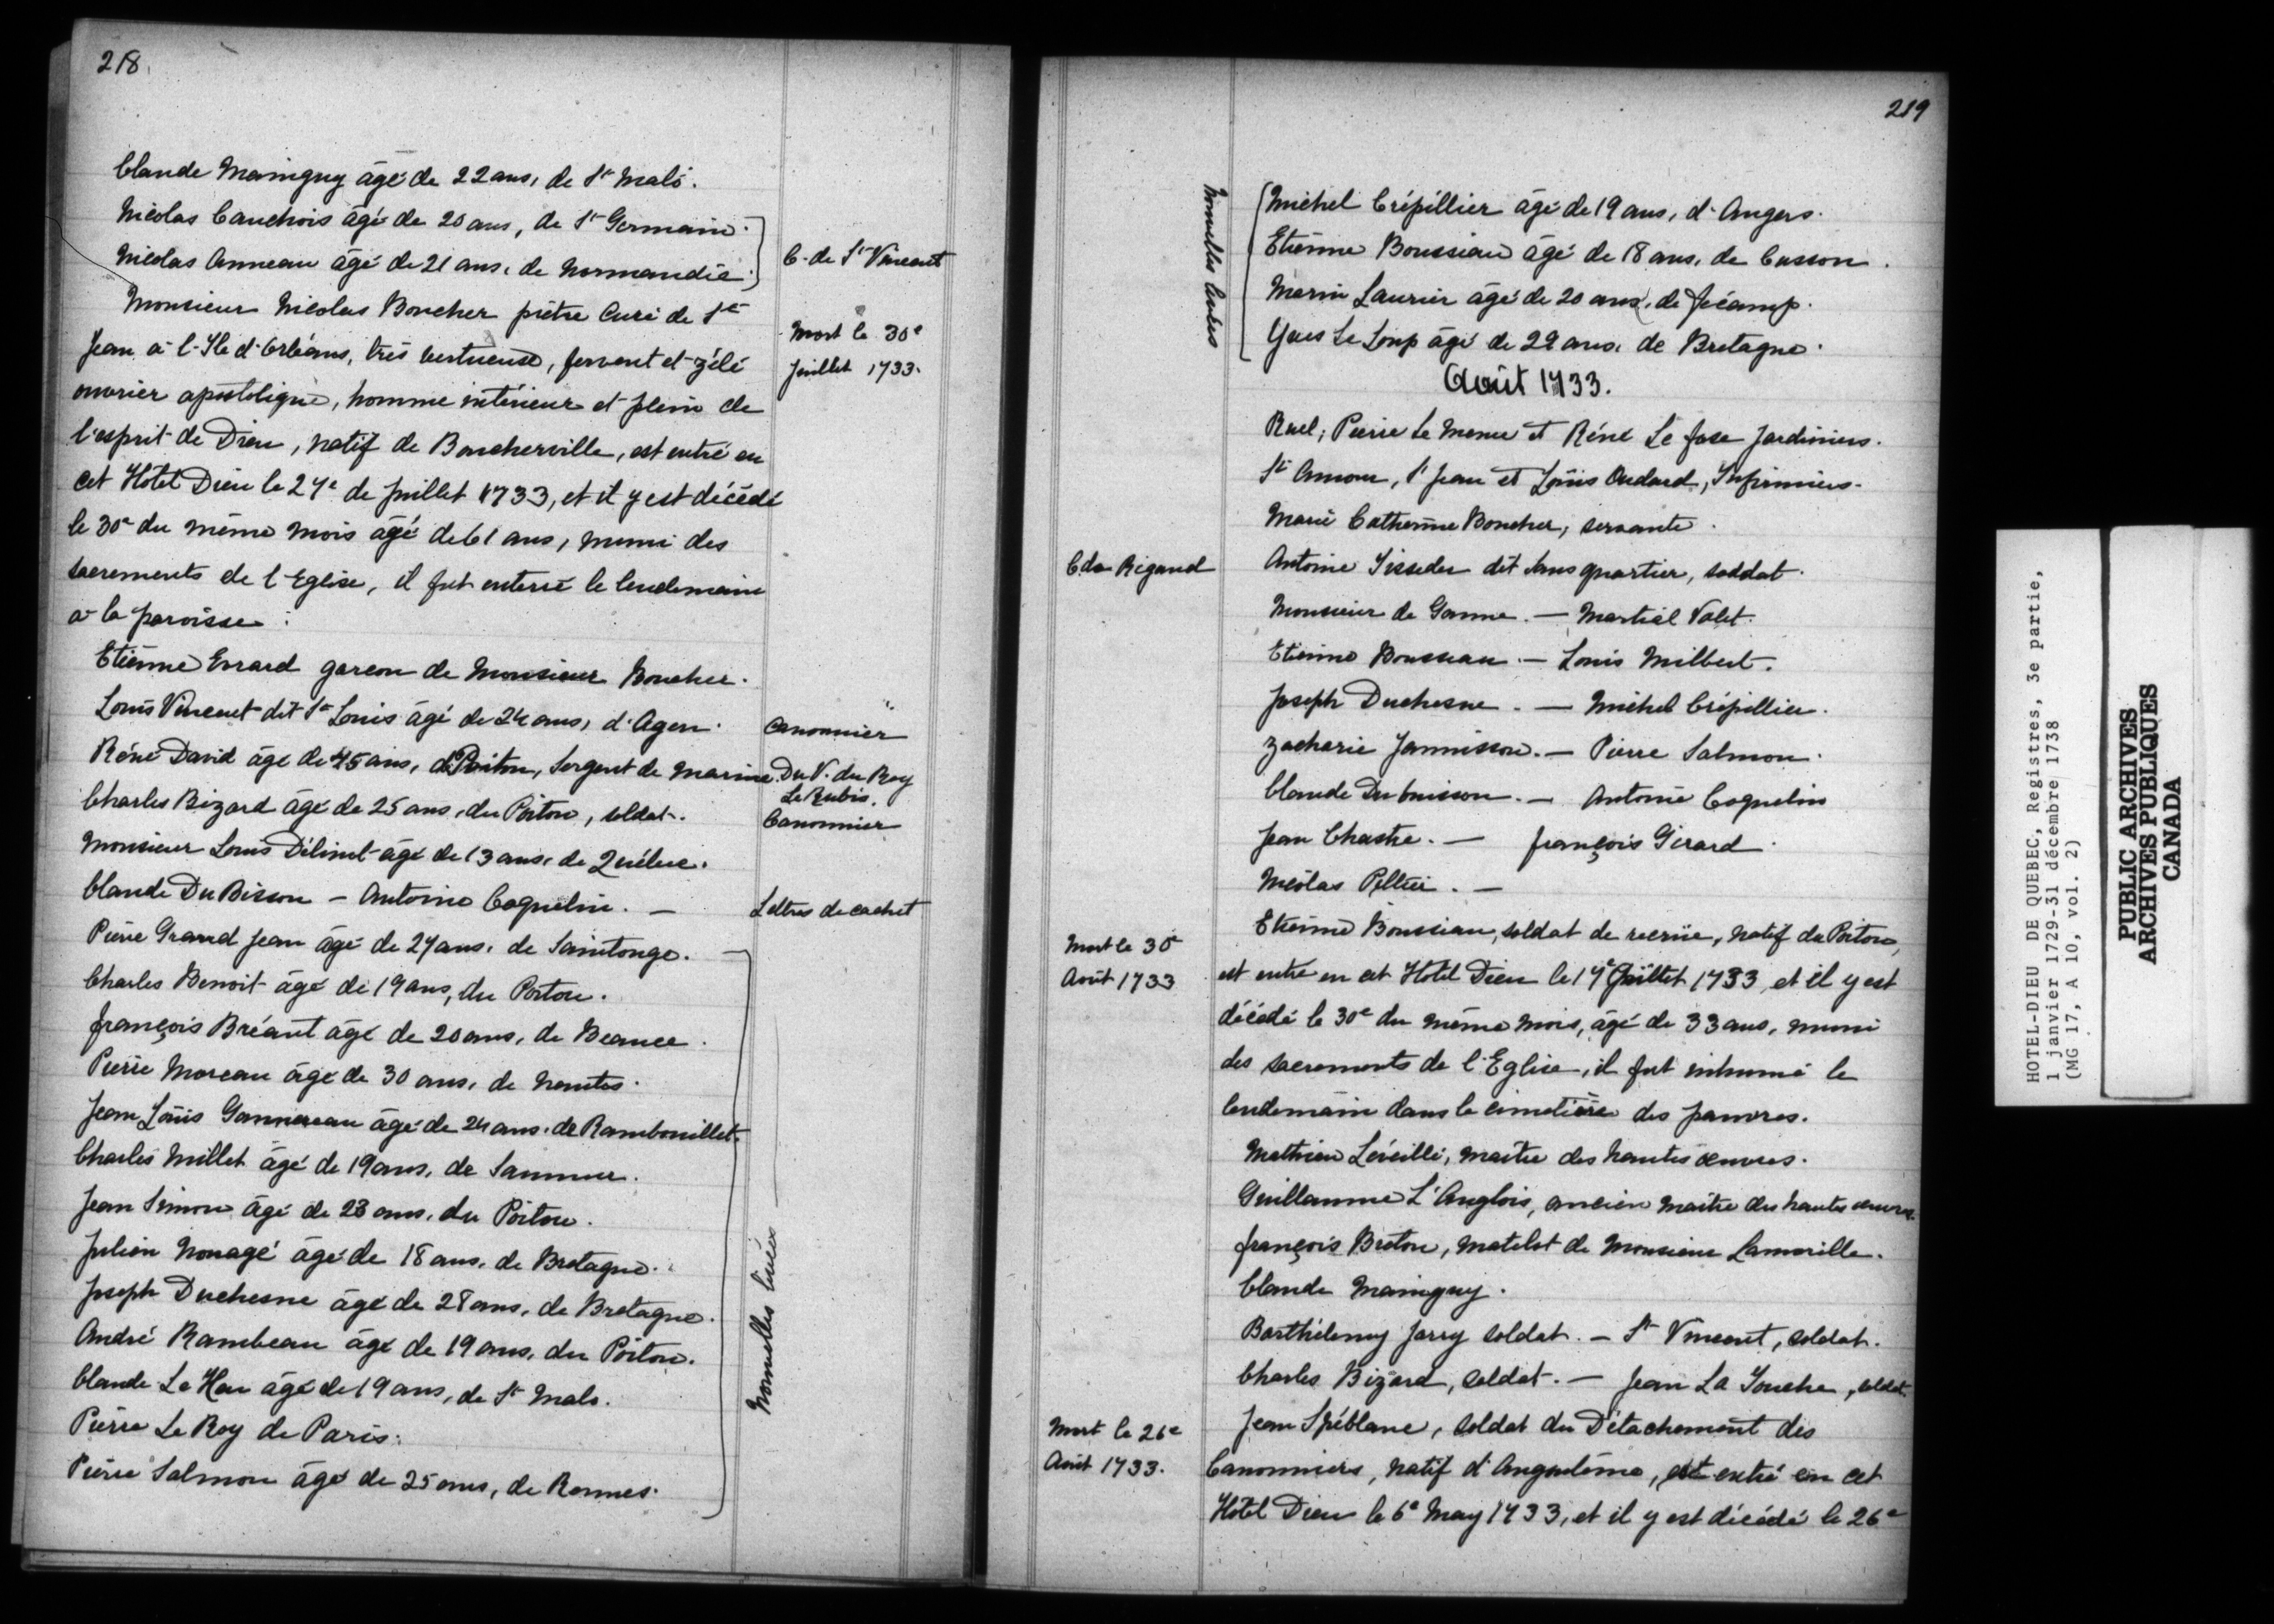 218
Claude Mainguy âgé de 22 ans, de St Malo.
Nicolas Cauchois âgé de 20 ans, de St Germain.
Nicolas Anneau âgé de 21 ans, de Normandie.
C. de St Vincent
Monsieur Nicolas Boucher prêtre Curé de St
Jean à l'Ile d'Orléans, très vertueux, fervent et zélé
ouvrier apostolique, homme intérieur et plein de
l'esprit de Dieu, natif de Boucherville, est entré en
cet Hotel Dieu le 27e de Juillet 1733, et il y est décédé
le 30e du même mois âgé de 61 ans, muni des
sacrements de l'Eglise, il fut enterré le lendemain
à la paroisse.
Mort le 30e
Juillet 1733.
Etienne Errard garcon de Monsieur Boucher.
Louis Vincent dit St Louis âgé de 24 ans, d'Agen.
Canonnier
Réné David âgé de 45 ans, de Poitou, Sergent de Marine.
Du V. du Roy
Le Rubis.
Charles Bizard âgé de 25 ans, du Poitou, soldat.
Canonnier
Monsieur Louis âgé de 13 ans, de Québec.
Claude Du Bisson – Antoine Coquelin. –
Lettres de cachet
Pierre Grand Jean âgé de 27 ans, de Saintonge.
Charles Benoit âgé de 19 ans, du Poitou.
François Bréant âgé de 20 ans, de Beauce.
Pierre Moreau âgé de 30 ans, de Nantes.
Jean Louis âgé de 24 ans, de Rambouillet.
Charles Millet âgé de 19 ans, de Saumur.
Jean Simon âgé de 23 ans, du Poitou.
Julien Nouagé âgé de 18 ans, de Bretagne.
Joseph Duchesne âgé de 28 ans, de Bretagne.
André Rambeau âgé de 19 ans, du Poitou.
Claude Le Heu âgé de 19 ans, de St Malo.
Pierre Le Roy de Paris.
Pierre Salmon âgé de 25 ans, de Rennes.
Nouvelles
219
Michel Crépillier âgé de 19 ans, d'Angers.
Etienne Boussiau âgé de 18 ans, de Cusson.
Marin Laurier âgé de 20 ans, de Fécamp.
Yves Le Loup âgé de 22 ans, de Bretagne.
Nouvelles
Août 1733.
Ruel, Pierre Le Menu et Réné Le fase Jardiniers.
St Amour, St Jean et Louis Oudard, Infirmiers.
Marie Catherine Boucher, servante.
C de Rigaud
Antoine Tisseder dit Sans quartier, soldat.
Monsieur de Ganne. – Martial Valet.
Etienne Bousseau. – Louis Milbert.
Joseph Duchesne. – Michel Crépillier.
Zacharie Jannisson. – Pierre Salmon.
Claude Dubuisson. – Antoine Coquelin
Jean Chastre. – François Girard.
Nicolas Pellier. –
Mort le 30e
Août 1733
Etienne Boussiau, soldat de recrüe, natif du Poitou,
est entré en cet Hotel Dieu le 17e Juillet 1733, et il y est
décédé le 30e du même mois, âgé de 33 ans, muni
des sacrements de l'Eglise, il fut inhumé le
lendemain dans le cimetière des pauvres.
Mathieu Léveillé, maître des hautes œuvres.
Guillaume L'Anglois, ancien maître des hautes œuvres.
François Breton, matelot de Monsieur Lamorille.
Claude Mainguy.
Barthélemy Jarry soldat. – St Vincent, soldat.
Charles Bizard, soldat. – Jean La Touche, soldat.
Mort le 26e
Août 1733.
Jean Spéblanc, soldat du Détachement des
Canonniers, natif d'Angoulème, est entré en cet
Hotel Dieu le 6e May 1733, et il y est décédé le 26e
HOTEL-DIEU DE QUEBEC, Registres, 3e partie,
1 janvier 1729-31 décembre 1738
(MG 17, A 10, vol. 2)
PUBLIC ARCHIVES
ARCHIVES PUBLIQUES
CANADA